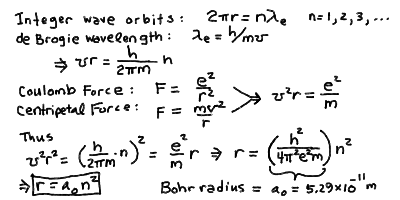 Integer wave orbits: 2πr = nλₑ n=1,2,3,...
de Brogie wavelength: λₑ = h/mv
⇒ vr = h/2πm n
Coulomb Force: F = e²/r²
Centripetal Force: F = mv²/r > v²r = e²/m
Thus
v²r² = (h/2πm · n)² = e²/m r ⇒ r = (h²/4π²e²m) n²
⇒ r = a₀n² Bohr radius = a₀ = 5.29×10⁻¹¹ m